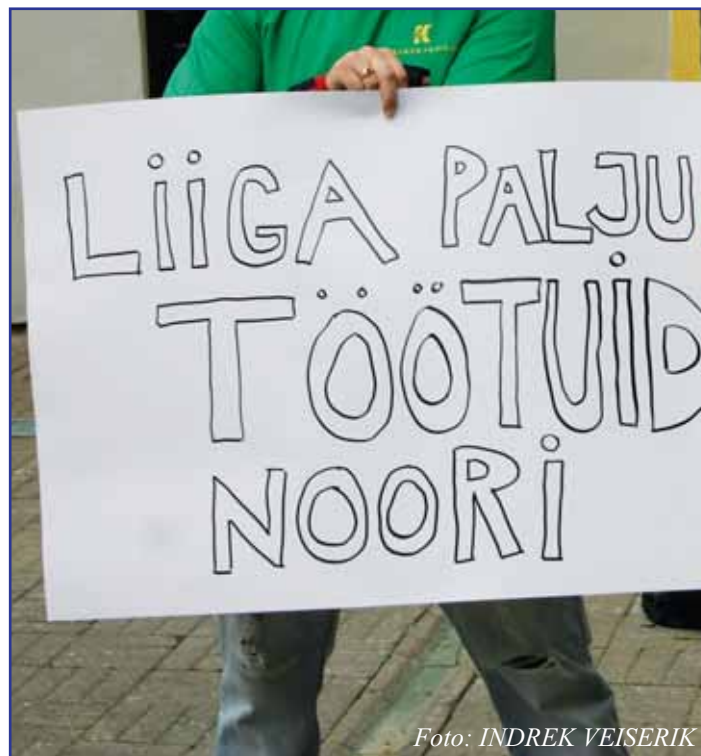 LiiGA PALJU
TÖÖTUiD
NOORi
Foto: INDREK VEISERIK